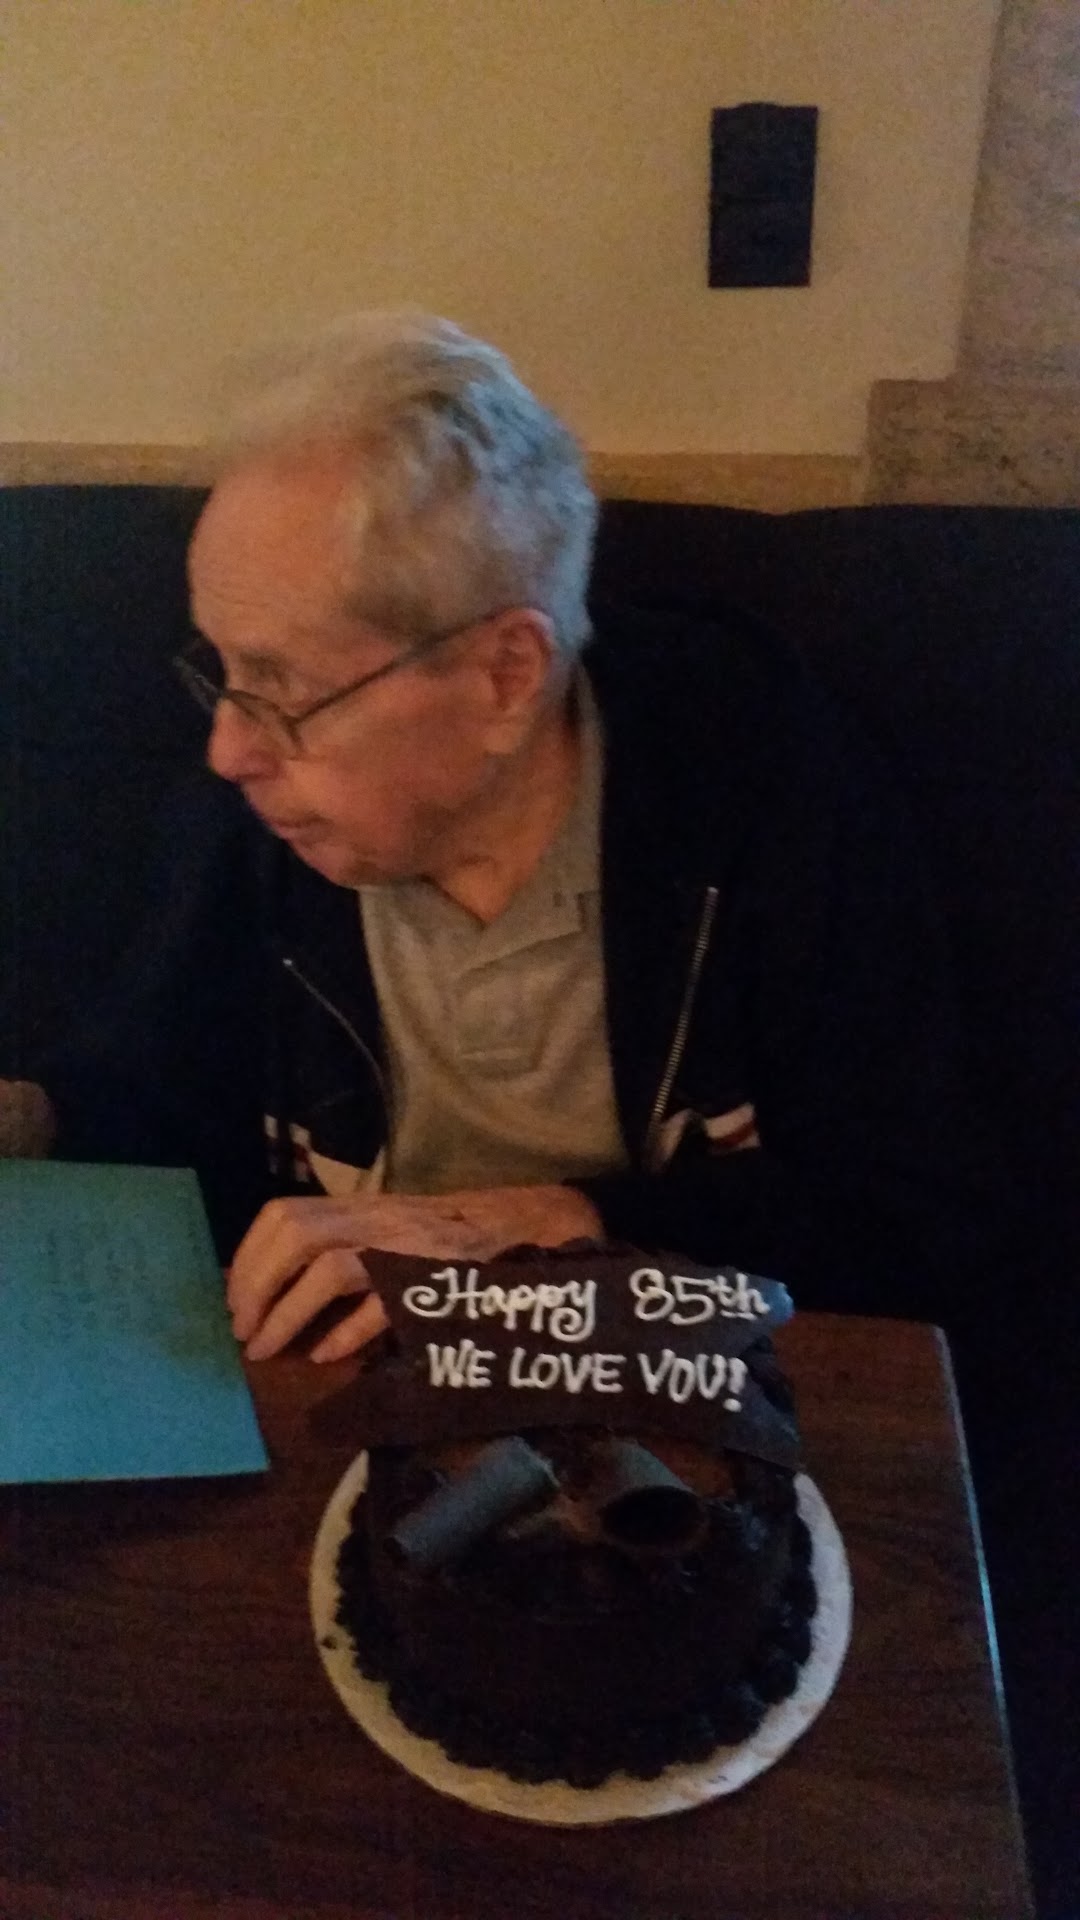 Happy 85th
WE LOVE YOU!